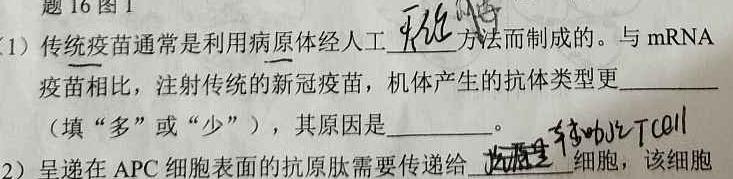 题 16 图 1
(1) 传统疫苗通常是利用病原体经人工 方法而制成的。与 mRNA
疫苗相比，注射传统的新冠疫苗，机体产生的抗体类型更________
（填“多”或“少”），其原因是________。
2) 呈递在 APC 细胞表面的抗原肽需要传递给 T cell 细胞，该细胞